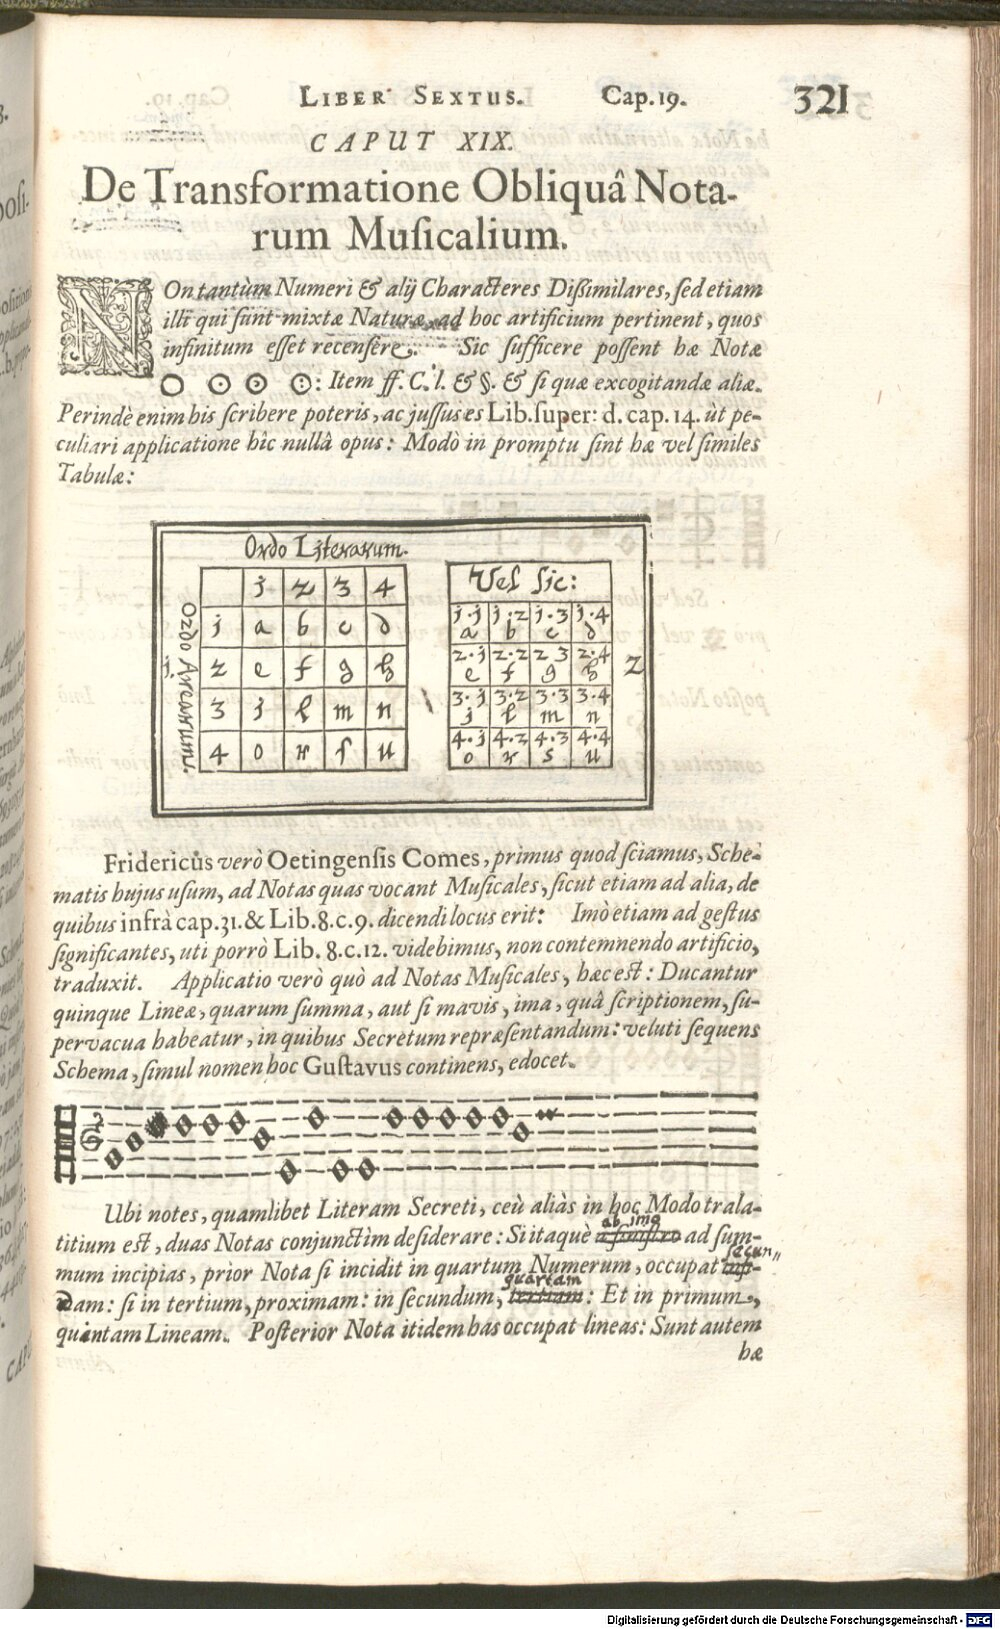 LIBER SEXTUS. Cap. 19. 321
CAPUT XIX.
De Transformatione Obliquâ Nota-
rum Muſicalium.
NOn tantùm Numeri & alij Characteres Diſsimilares, ſed etiam
illi qui ſunt mixtæ Naturæ, ad hoc artificium pertinent, quos
infinitum eſſet recenſere. Sic ſufficere poſſent hæ Notæ
: Item ſſ. C. l. & §. & ſi quæ excogitandæ aliæ.
Perindè enim his ſcribere poteris, ac juſſus es Lib. ſuper: d. cap. 14. ùt pe-
culiari applicatione hîc nullâ opus: Modò in promptu ſint hæ vel ſimiles
Tabulæ:
Ordo Literarum.
Ordo Arearum.
j 2 3 4
j a b c d
2 e f g h
3 i l m n
4 o r ſ u
1.
Vel ſic:
j.j j.2 j.3 j.4
a b c d
2.j 2.2 2 3 2.4
e f g h
3.j 3.2 3.3 3.4
j l m n
4.j 4.2 4.3 4.4
o r s u
2
Fridericus verò Oetingenſis Comes, primus quod ſciamus, Sche-
matis hujus uſum, ad Notas quas vocant Muſicales, ſicut etiam ad alia, de
quibus infrà cap. 31. & Lib. 8. c. 9. dicendi locus erit: Imò etiam ad geſtus
ſignificantes, uti porrò Lib. 8. c. 12. videbimus, non contemnendo artificio,
traduxit. Applicatio verò quò ad Notas Muſicales, hæc eſt: Ducantur
quinque Lineæ, quarum ſumma, aut ſi mavis, ima, quâ ſcriptionem, ſu-
pervacua habeatur, in quibus Secretum repræſentandum: veluti ſequens
Schema, ſimul nomen hoc Guſtavus continens, edocet.
Ubi notes, quamlibet Literam Secreti, ceù aliàs in hoc Modo trala-
ab ima
titium eſt, duas Notas conjunctìm deſiderare: Si itaquè à ſiniſtro ad ſum-
ſecun„
mum incipias, prior Nota ſi incidit in quartum Numerum, occupat
quartam
dam: ſi in tertium, proximam: in ſecundum, tertiam: Et in primum,
quintam Lineam. Poſterior Nota itidem has occupat lineas: Sunt autem
hæ
Digitalisierung gefördert durch die Deutsche Forschungsgemeinschaft - DFG